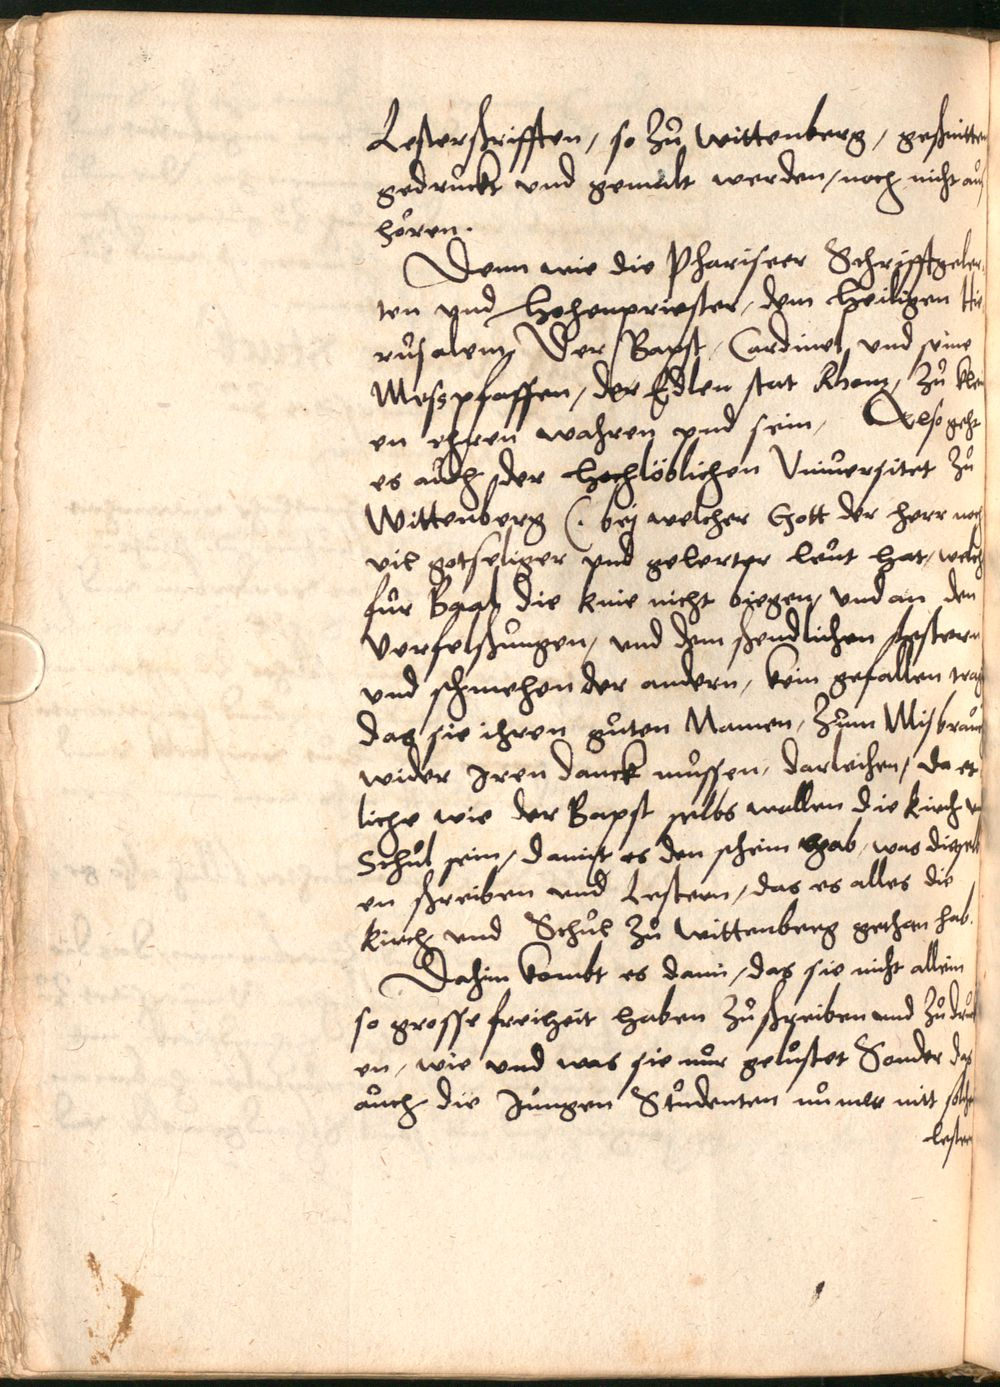 Lesterschrifften, so zů Wittenberg, geschnitten
gedruckt vnd gemalt werden, noch nicht auff
hören.
Denn wie die Phariseer Schrifftgeler
ten vnd Hohenpriester, dem heiligen Hie
rusalem, Der Bapst, Cardinel vnd seine
Messpfaffen, der Edlen stat Rhom, zů klei
en ehren wahren vnd sein, Also geht
es auch der hochlöblichen Vniuersitet zů
Wittenberg (. bej welcher Gott der herr noch
vil gotseliger vnd gelerter leut hat, welch
für Baal die knie nicht biegen, vnd an den
Verfelschungen, vnd dem schendlichen lestern
vnd schmehen der andern, kein gefallen trag
das sie ihren guten Namen, zum Misbrauch
wider Iren danck müssen, darleihen, da et
liche wie der Bapst selbs wollen die kirch vn
Schůl sein, damit es den schein hab, was dieselb
en schreiben vnd Lestern, das es alles die
kirch vnd Schůl zů Wittenberg gethan hab.
Dahin kombt es dann, das sie nicht allein
so grosse freiheit haben zů schreiben vnd zů druck
en, wie vnd was sie nur gelustet Sonder das
auch die Jungen Studenten numer mitt solchen
lester